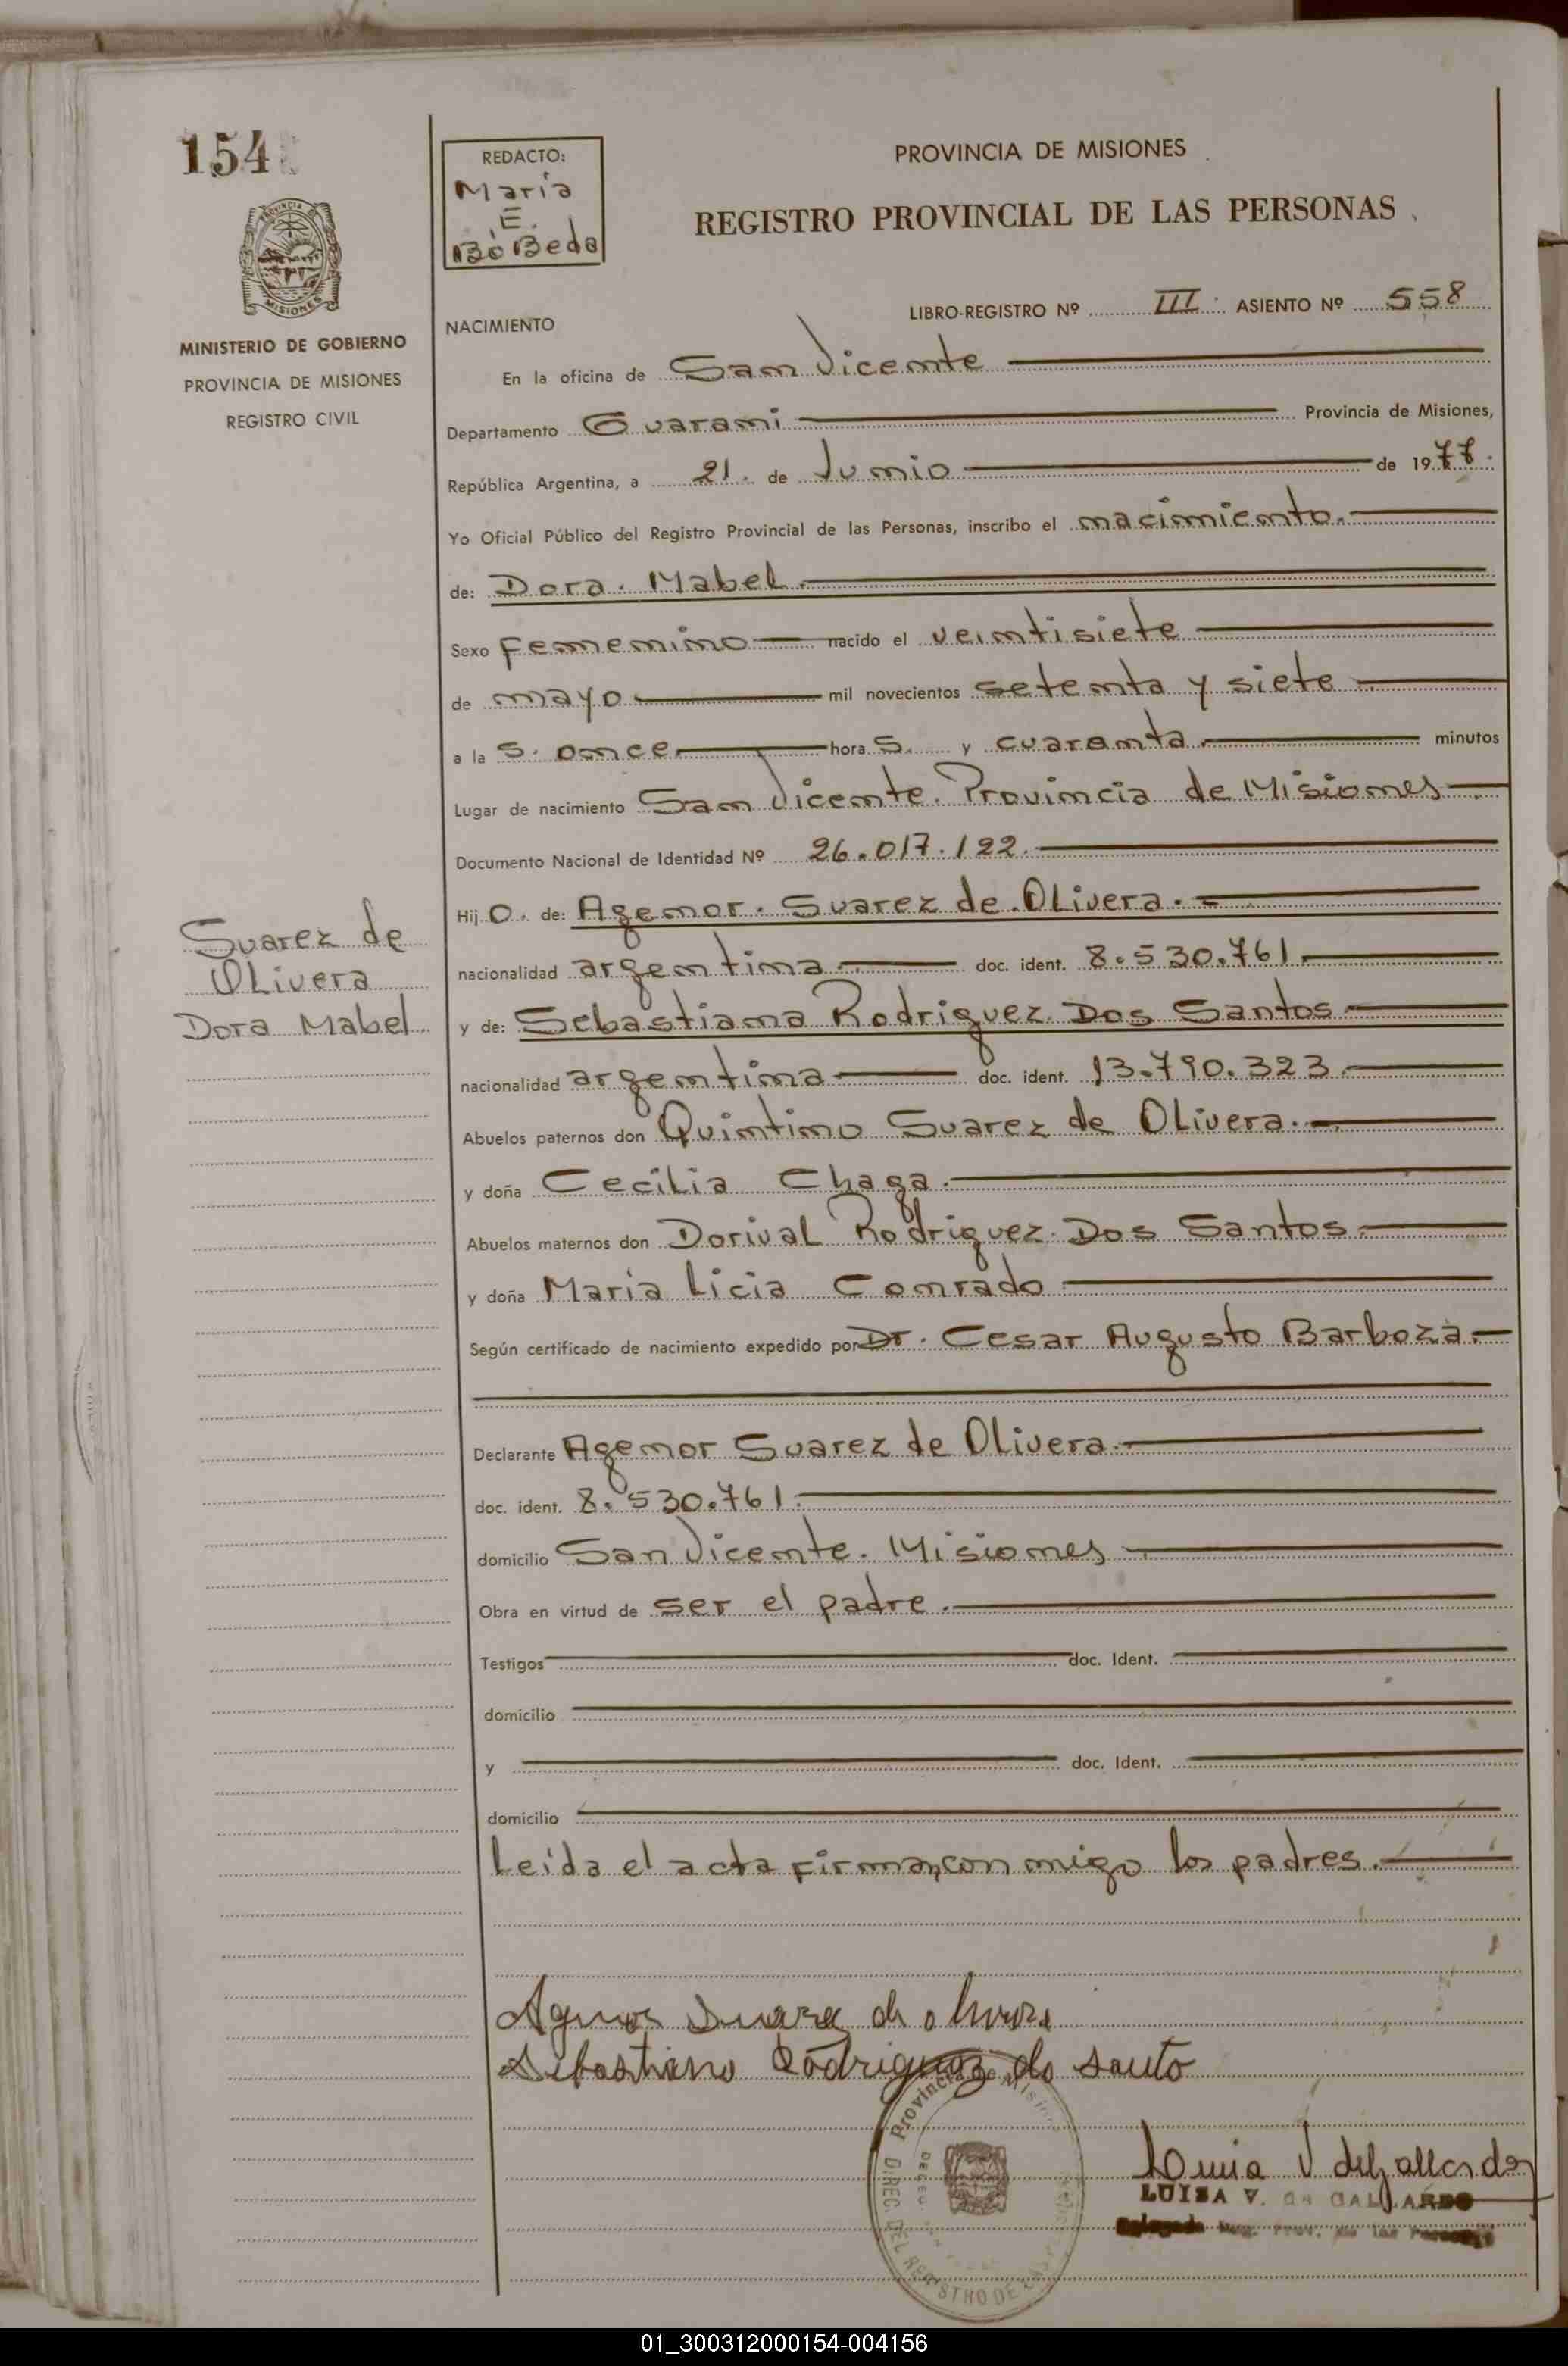 154
REDACTO:
María
E.
Bó Beda
PROVINCIA DE MISIONES
REGISTRO PROVINCIAL DE LAS PERSONAS
PROVINCIA DE
MISIONES
MINISTERIO DE GOBIERNO
PROVINCIA DE MISIONES
REGISTRO CIVIL
LIBRO-REGISTRO Nº III ASIENTO Nº 558
NACIMIENTO
En la oficina de San Vicente
Departamento Guarani Provincia de Misiones,
República Argentina, a 21. de Junio de 1977.
Yo Oficial Público del Registro Provincial de las Personas, inscribo el nacimiento.
de: Dora. Mabel.
Sexo femenino nacido el veintisiete
de mayo mil novecientos setenta y siete
a la s. once hora s. y cuarenta minutos
Lugar de nacimiento San Vicente. Provincia de Misiones
Documento Nacional de Identidad Nº 26.017.122.
Hij o. de: Agenor. Suarez de Olivera.
nacionalidad argentina doc. ident. 8.530.761.
y de: Sebastiana Rodriguez Dos Santos
nacionalidad argentina doc. ident. 13.790.323
Abuelos paternos don Quintino Suarez de Olivera.
y doña Cecilia Chaga.
Abuelos maternos don Dorival Rodriguez Dos Santos.
y doña María Licia Conrado
Según certificado de nacimiento expedido por Dr. Cesar Augusto Barboza.
Declarante Agenor Suarez de Olivera.
doc. ident. 8.530.761.
domicilio San Vicente. Misiones
Obra en virtud de ser el padre.
Testigos doc. Ident.
domicilio
y doc. Ident.
domicilio
Leída el acta firman, con migo los padres.
Suarez de
Olivera
Dora Mabel
Sebastiana Rodriguez do santo
Provincia de Misiones
DIREC. DEL REGISTRO DE LAS
Luisa V de Gallardo
LUISA V. DE GALLARDO
Delegada Reg. Prov. de las Personas
01_300312000154-004156